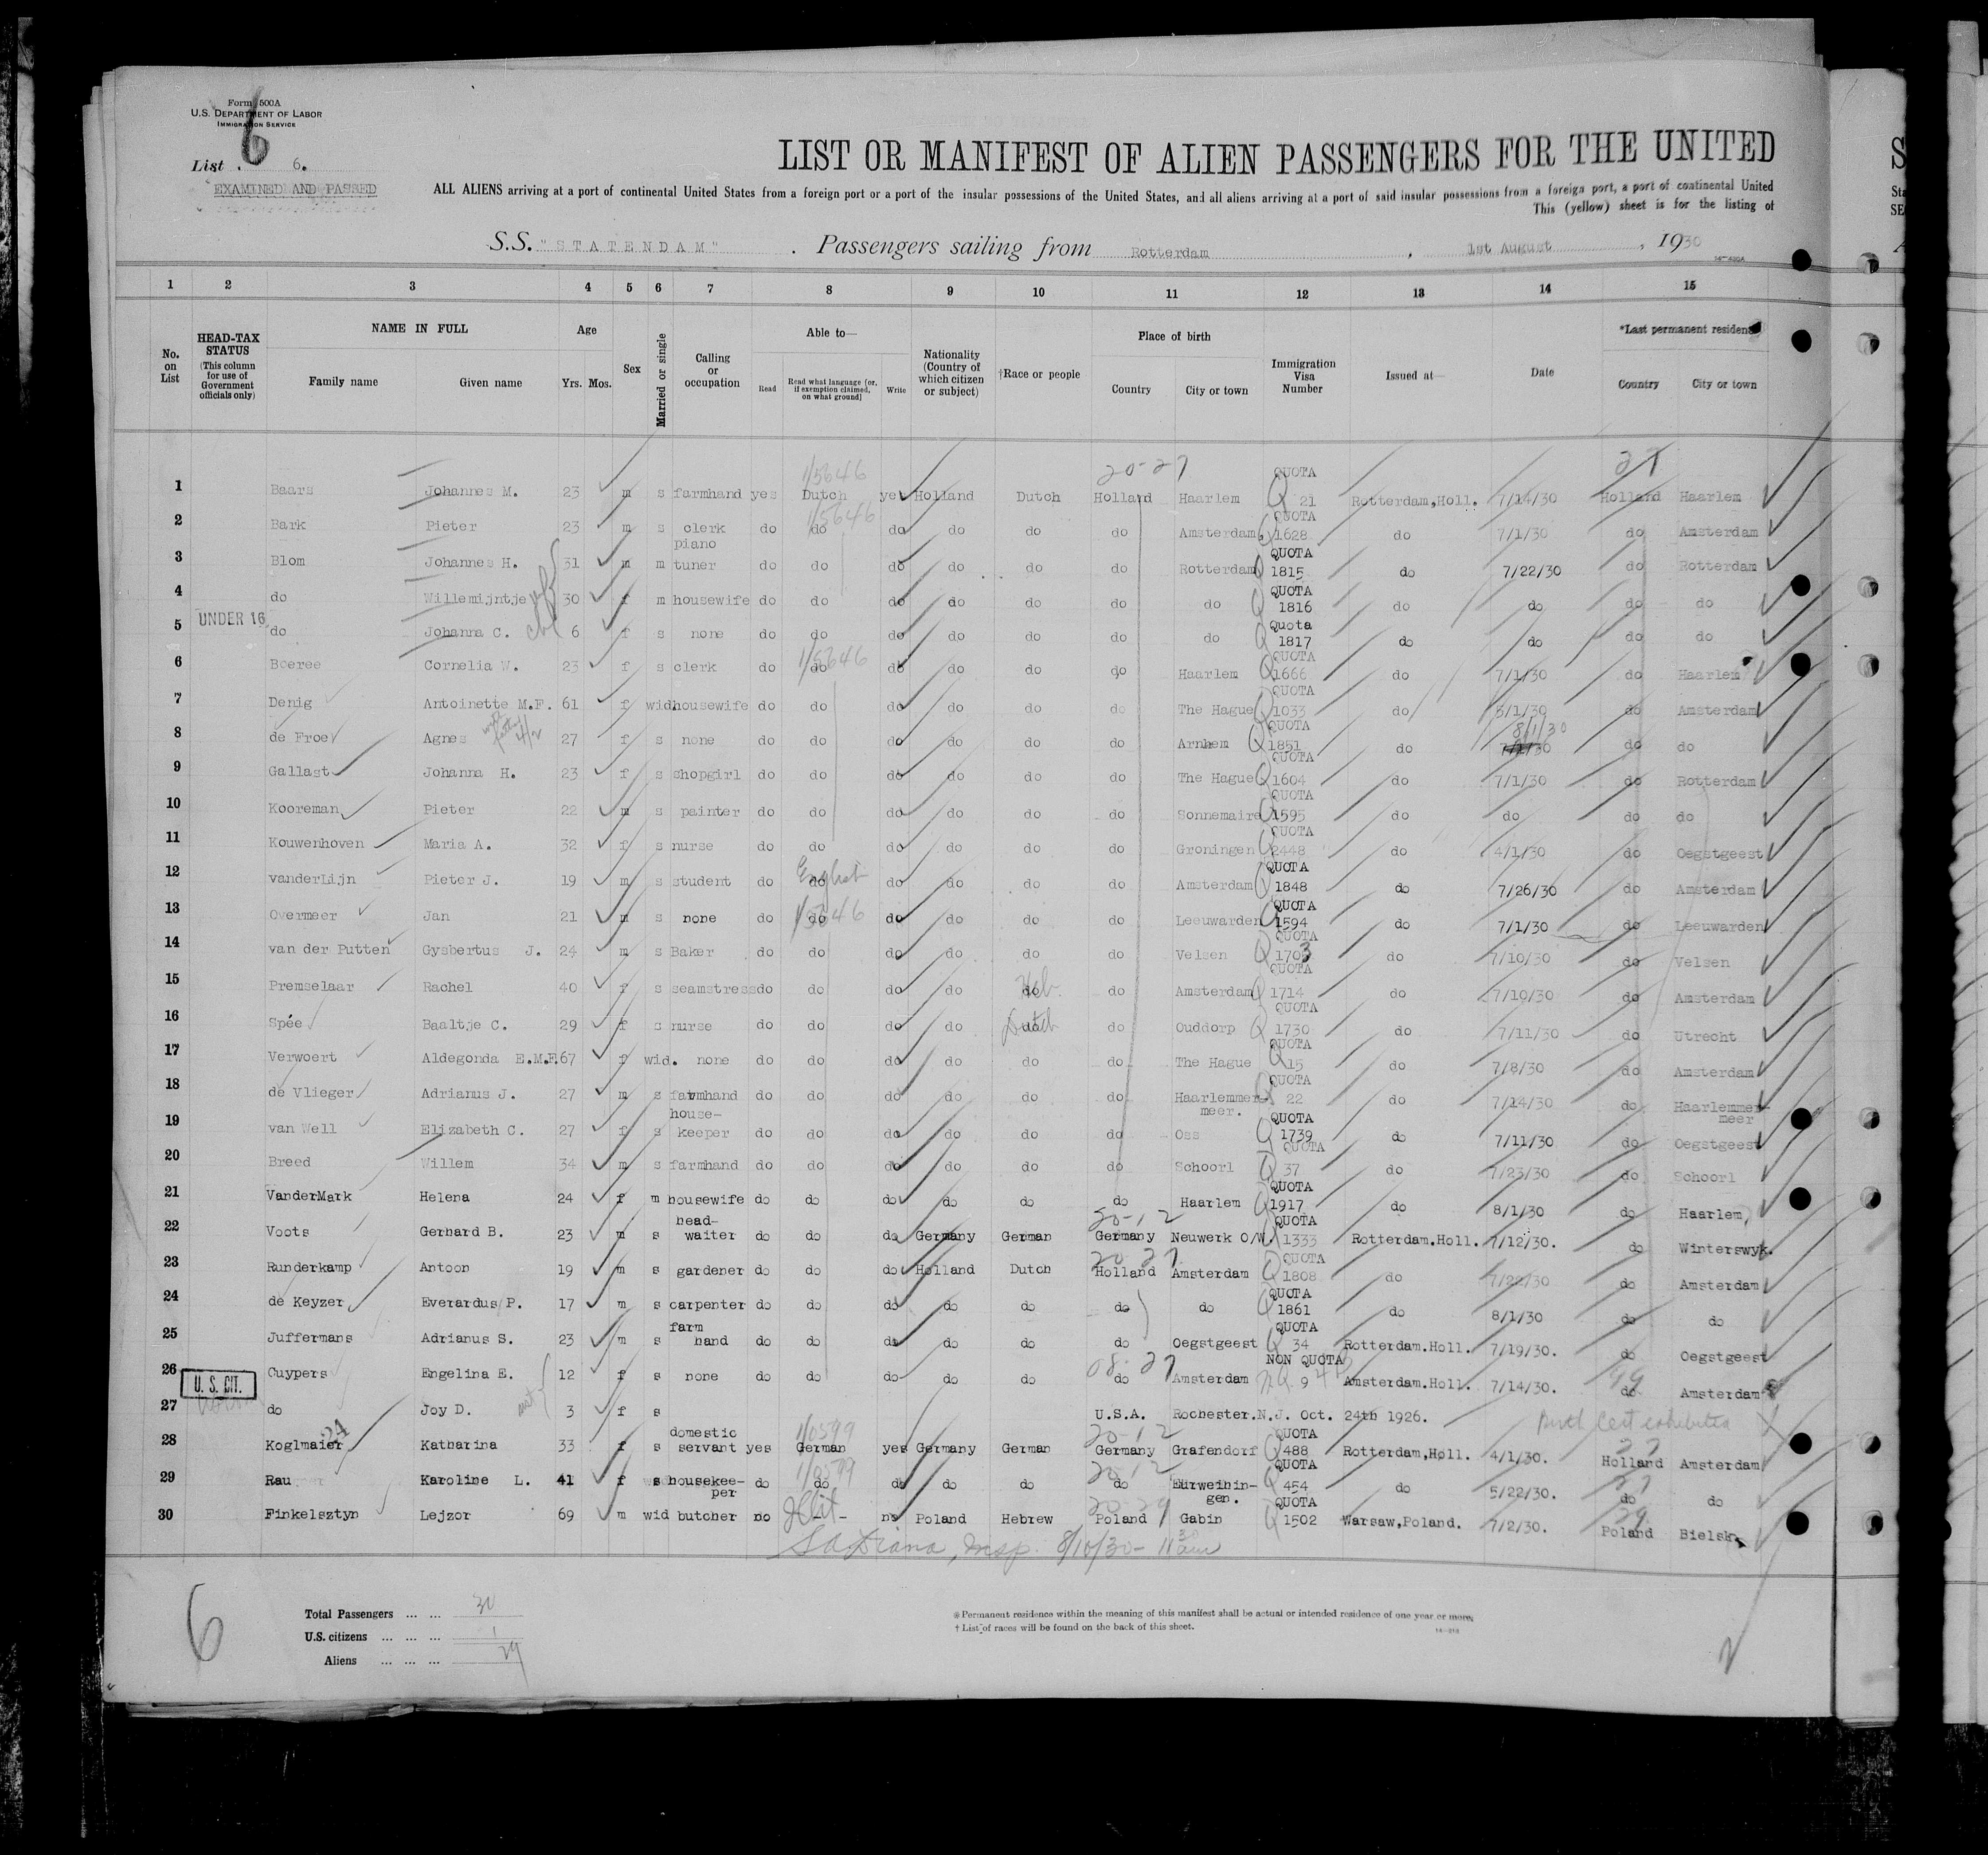 Form 500A
U.S. DEPARTMENT OF LABOR
IMMIGRATION SERVICE
6
List 6.
EXAMINED AND PASSED
LIST OR MANIFEST OF ALIEN PASSENGERS FOR THE UNITED
ALL ALIENS arriving at a port of continental United States from a foreign port or a port of the insular possessions of the United States, and all aliens arriving at a port of said insular possessions from a foreign port, a port of continental United
This (yellow) sheet is for the listing of
S.S. "STATENDAM" . Passengers sailing from Rotterdam , 1st August , 1930
1 2 3 4 5 6 7 8 9 10 11 12 13 14 15
No. on List
HEAD-TAX STATUS (This column for use of Government officials only)
NAME IN FULL
Family name Given name
Age
Yrs. Mos.
Sex
Married or single
Calling or occupation
Able to—
Read Read what language [or, if exemption claimed, on what ground] Write
Nationality (Country of which citizen or subject)
†Race or people
Place of birth
Country City or town
Immigration Visa Number
Issued at—
Date
*Last permanent residence
Country City or town
15646 20-27 QUOTA 27
1 Baars Johannes M. 23 m s farmhand yes Dutch yes Holland Dutch Holland Haarlem Q 21 Rotterdam,Holl. 7/14/30 Holland Haarlem
15646 QUOTA
2 Bark Pieter 23 m s clerk do do do do do do Amsterdam 1628 do 7/1/30 do Amsterdam
piano QUOTA
3 Blom Johannes H. 31 m m tuner do do do do do do Rotterdam 1815 do 7/22/30 do Rotterdam
QUOTA
4 do Willemijntje 30 f m housewife do do do do do do do 1816 do do do do
UNDER 16 Quota
5 do Johanna C. 6 f s none do do do do do do do 1817 do do do do
15646 QUOTA
6 Boeree Cornelia W. 23 f s clerk do do do do do do Haarlem 1666 do 7/1/30 do Haarlem
QUOTA
7 Denig Antoinette M.F. 61 f wid housewife do do do do do do The Hague 1033 do 5/1/30 do Amsterdam
QUOTA 8/1/30
8 de Froe Agnes 27 f s none do do do do do do Arnhem 1851 do do do
QUOTA
9 Gallast Johanna H. 23 f s shopgirl do do do do do do The Hague 1604 do 7/1/30 do Rotterdam
QUOTA
10 Kooreman Pieter 22 m s painter do do do do do do Sonnemaire 1595 do do do do
QUOTA
11 Kouwenhoven Maria A. 32 f s nurse do do do do do do Groningen 2448 do 4/1/30 do Oegstgeest
English QUOTA
12 vanderLijn Pieter J. 19 m s student do do do do do do Amsterdam 1848 do 7/26/30 do Amsterdam
15646 QUOTA
13 Overmeer Jan 21 m s none do do do do do do Leeuwarden 1594 do 7/1/30 do Leeuwarden
QUOTA
14 van der Putten Gysbertus J. 24 m s Baker do do do do do do Velsen 1703 do 7/10/30 do Velsen
QUOTA
15 Premselaar Rachel 40 f s seamstress do do do do do Heb. do Amsterdam 1714 do 7/10/30 do Amsterdam
QUOTA
16 Spée Baaltje C. 29 f s nurse do do do do Dutch do Ouddorp 1730 do 7/11/30 do Utrecht
QUOTA
17 Verwoert Aldegonda E.M.F. 67 f wid. none do do do do do do The Hague 15 do 7/8/30 do Amsterdam
QUOTA
18 de Vlieger Adrianus J. 27 m s farmhand do do do do do do Haarlemmer- 22 do 7/14/30 do Haarlemmer-
house- meer. QUOTA meer
19 van Well Elizabeth C. 27 f s keeper do do do do do do Oss 1739 do 7/11/30 do Oegstgeest
QUOTA
20 Breed Willem 34 m s farmhand do do do do do do Schoorl 37 do 7/23/30 do Schoorl
QUOTA
21 VanderMark Helena 24 f m housewife do do do do do do Haarlem 1917 do 8/1/30 do Haarlem,
head- 20-12 QUOTA
22 Voots Gerhard B. 23 m s waiter do do do Germany German Germany Neuwerk O/W. 1333 Rotterdam.Holl. 7/12/30. do Winterswyk.
20 27 QUOTA
23 Runderkamp Antoon 19 m s gardener do do do Holland Dutch Holland Amsterdam 1808 do 7/22/30 do Amsterdam
QUOTA
24 de Keyzer Everardus P. 17 m s carpenter do do do do do do do 1861 do 8/1/30 do do
farm QUOTA
25 Juffermans Adrianus S. 23 m s hand do do do do do do Oegstgeest 34 Rotterdam.Holl. 7/19/30. do Oegstgeest
08-27 NON QUOTA 99
26 Cuypers Engelina E. 12 f s none do do do do do do Amsterdam N.Q. 9 Amsterdam.Holl. 7/14/30. do Amsterdam
U. S. CIT.
27 do Joy D. 3 f s U.S.A. Rochester.N.J. Oct. 24th 1926. Birth Cert exhibited
24 domestic 10599 20-12 QUOTA 27
28 Koglmaier Katharina 33 f s servant yes German yes Germany German Germany Grafendorf 488 Rotterdam,Holl. 4/1/30. Holland Amsterdam
10599 20 12 QUOTA 27
29 Rau Karoline L. 41 f s housekee- do do do do do do Eurweihin- 454 do 5/22/30. do do
per gen. QUOTA 29
30 Finkelsztyn Lejzor 69 m wid butcher no - - no Poland Hebrew Poland Gabin 1502 Warsaw,Poland. 7/2/30. Poland Bielsk.
Insp. 8/10/30- 11 30 am
6
Total Passengers ... ... 30
U.S. citizens ... ... ... 1
Aliens ... ... ... 29
* Permanent residence within the meaning of this manifest shall be actual or intended residence of one year or more.
† List of races will be found on the back of this sheet.